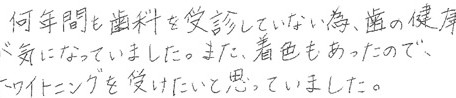 何年間も歯科を受診していない為、歯の健康
が気になっていました。また、着色もあったので、
ホワイトニングを受けたいと思っていました。